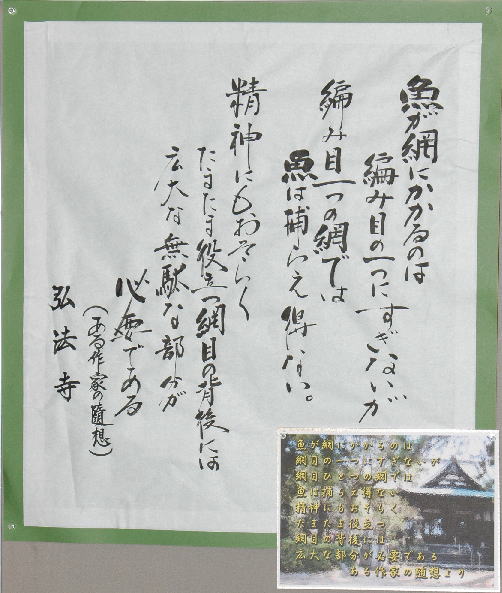 魚が網にかかるのは
編み目の一つにすぎないが
編み目一つの網では
魚は捕らえ得ない。
精神にもおそらく
たまたま役立つ網目の背後には
広大な無駄な部分が
必要である
(ある作家の随想)
弘法寺
魚が網にかかるのは
網目の一つにすぎないが
網目ひとつの網では
魚は捕らえ得ない
精神にもおそらく
たまたま役立つ
網目の背後には
広大な部分が必要である
ある作家の随想より